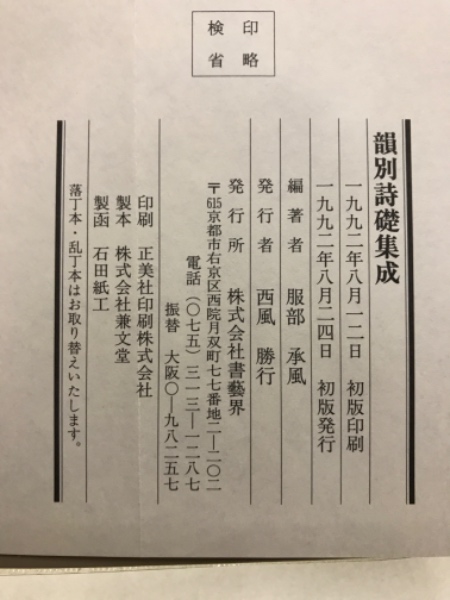 検印
省略
韻別詩礎集成
一九九二年八月一二日 初版印刷
一九九二年八月二四日 初版発行
編著者 服部承風
発行者 西風勝行
発行所 株式会社書藝界
〒615京都市右京区西院月双町七七番地二―二〇二
電話(〇七五)三一三―一二八七
振替 大阪〇―九八二五七
印刷 正美社印刷株式会社
製本 株式会社兼文堂
製函 石田紙工
落丁本・乱丁本はお取り替えいたします。